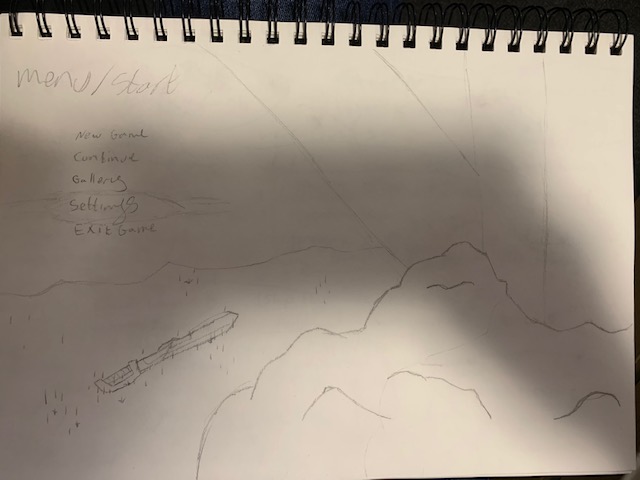 menu/start
New Game
Continue
Gallery
Settings
Exit Game